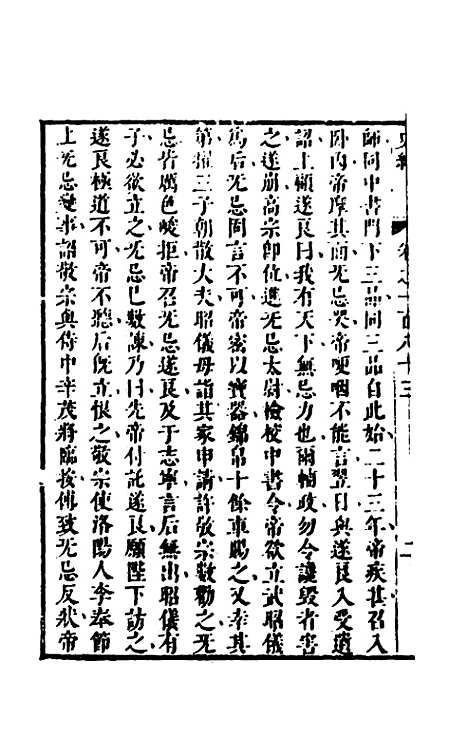 史緯 卷之一百八十三 二
師同中書門下三品同三品自此始二十三年帝疾甚召入
卧內帝摩其面无忌哭帝哽咽不能言翌日與遂良入受遺
詔上顧遂良曰我有天下無忌力也爾輔政勿令讒毀者害
之遂崩高宗卽位進无忌太尉檢校中書令帝欲立武昭儀
爲后无忌固言不可帝密以寶器錦帛十餘車賜之又幸其
第擢三子朝散大夫昭儀母詣其家申請許敬宗數勸之无
忌皆厲色峻拒帝召无忌遂良及于志寧言后無出昭儀有
子必欲立之无忌已數諫乃曰先帝付託遂良願陛下訪之
遂良極道不可帝不聽后旣立恨之敬宗使洛陽人李奉節
上无忌變事詔敬宗與侍中辛茂將臨按傅致无忌反狀帝